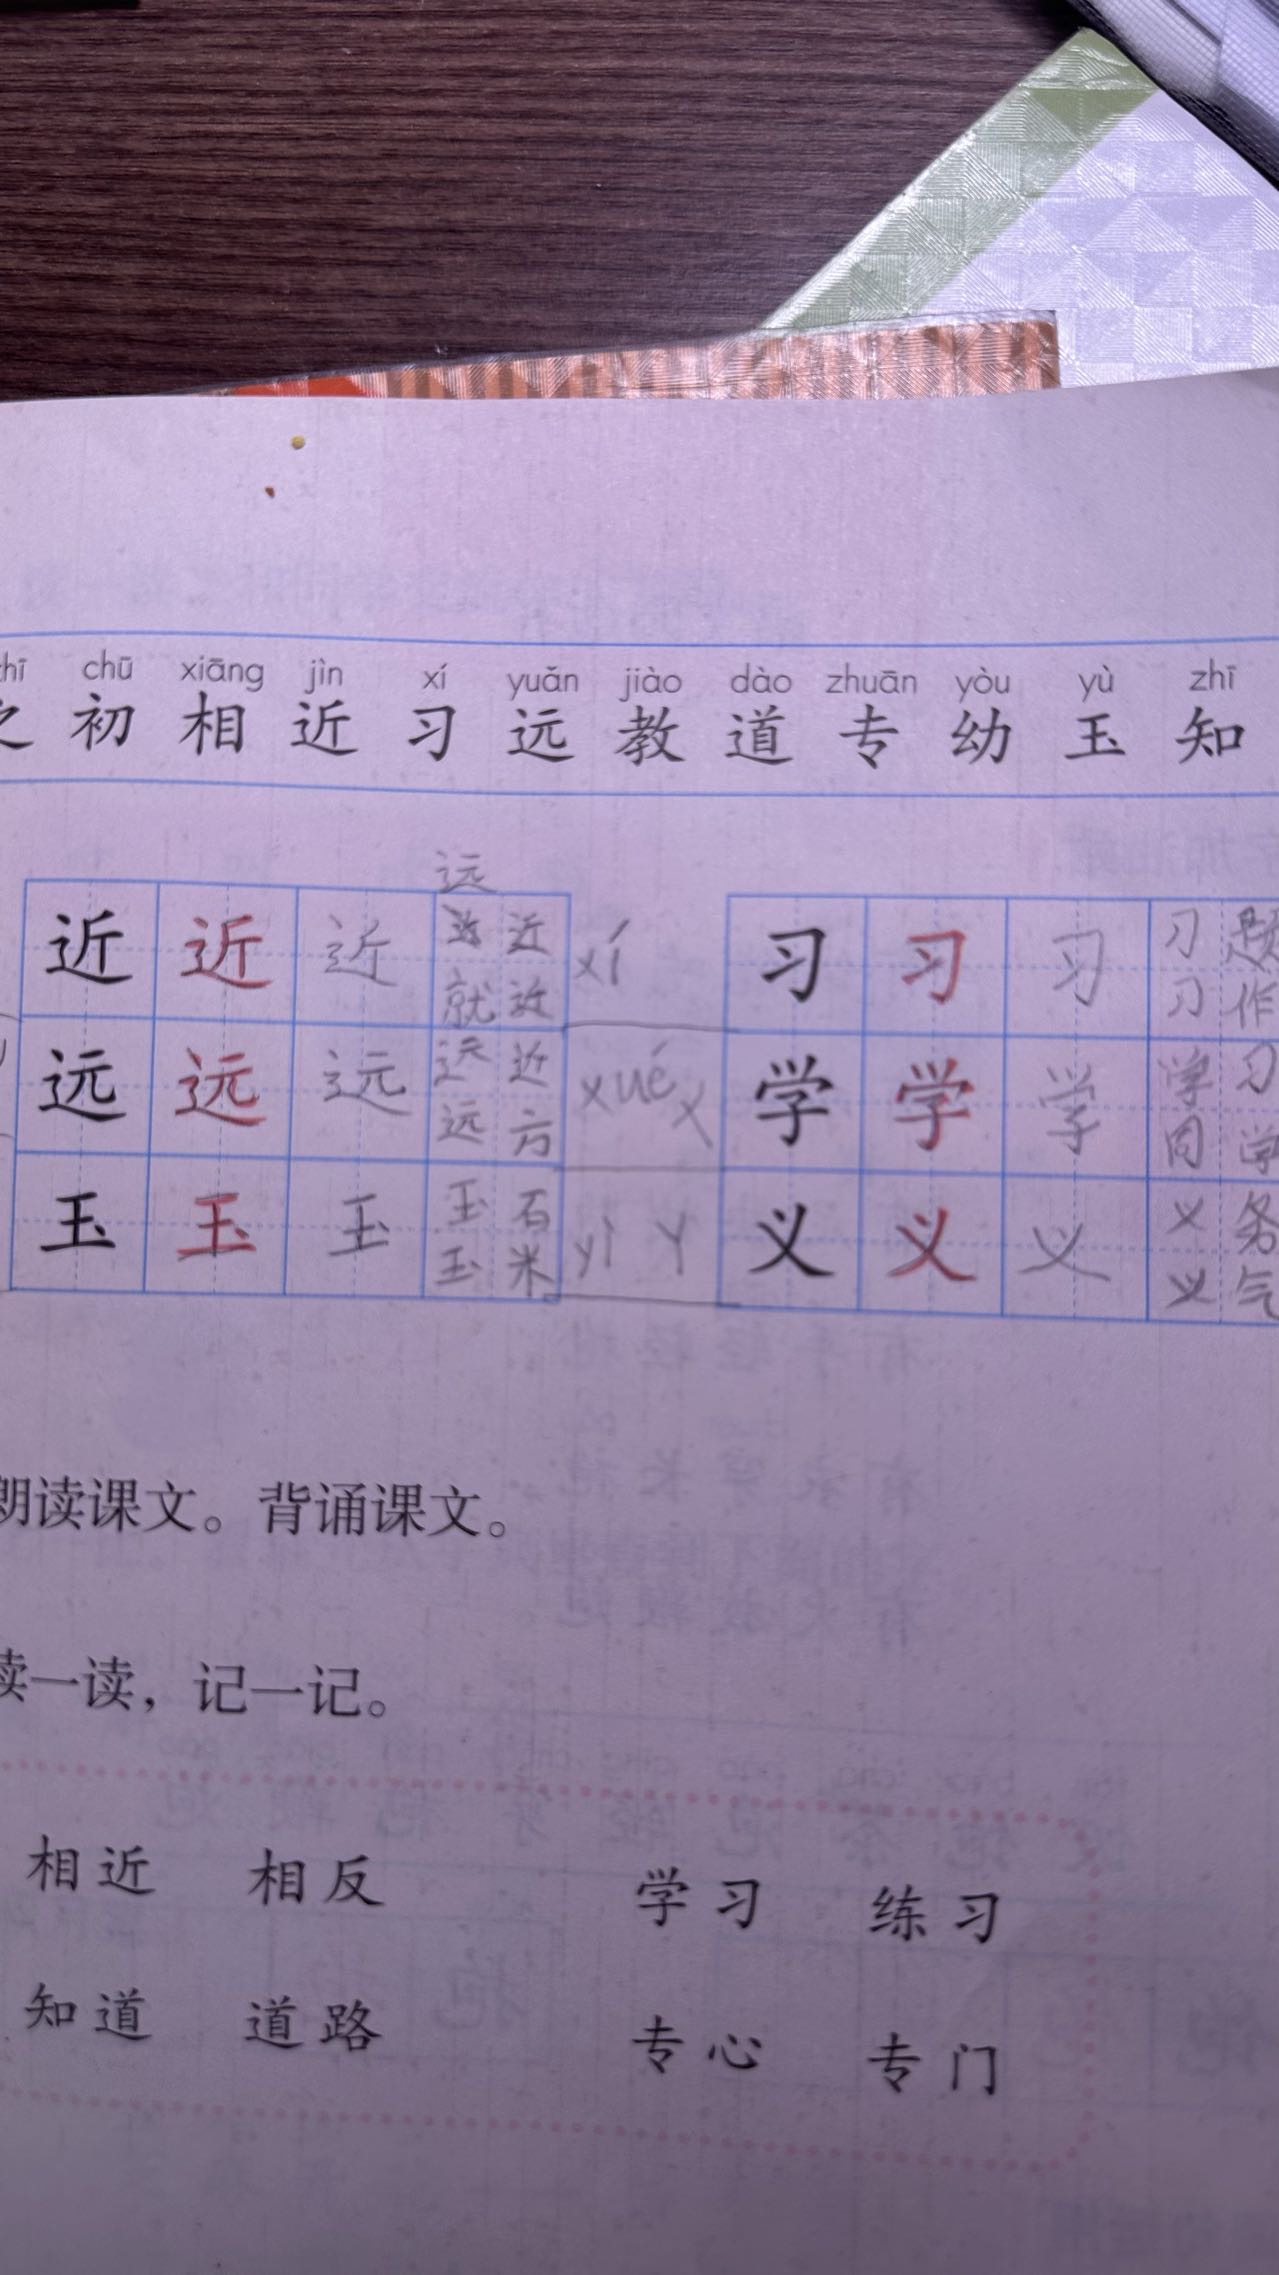 chū xiāng jìn xí yuǎn jiào dào zhuān yòu yù zhī
初 相 近 习 远 教 道 专 幼 玉 知
远
近 近 近 近 xí 习 习 习 习 题
就 近 习 作
远 远 远 远 近 xué 学 学 学 学 习
远 方 同 学
玉 玉 玉 玉 石 yì 义 义 义 义 务
玉 米 义 气
朗读课文。背诵课文。
读一读，记一记。
相近 相反 学习 练习
知道 道路 专心 专门